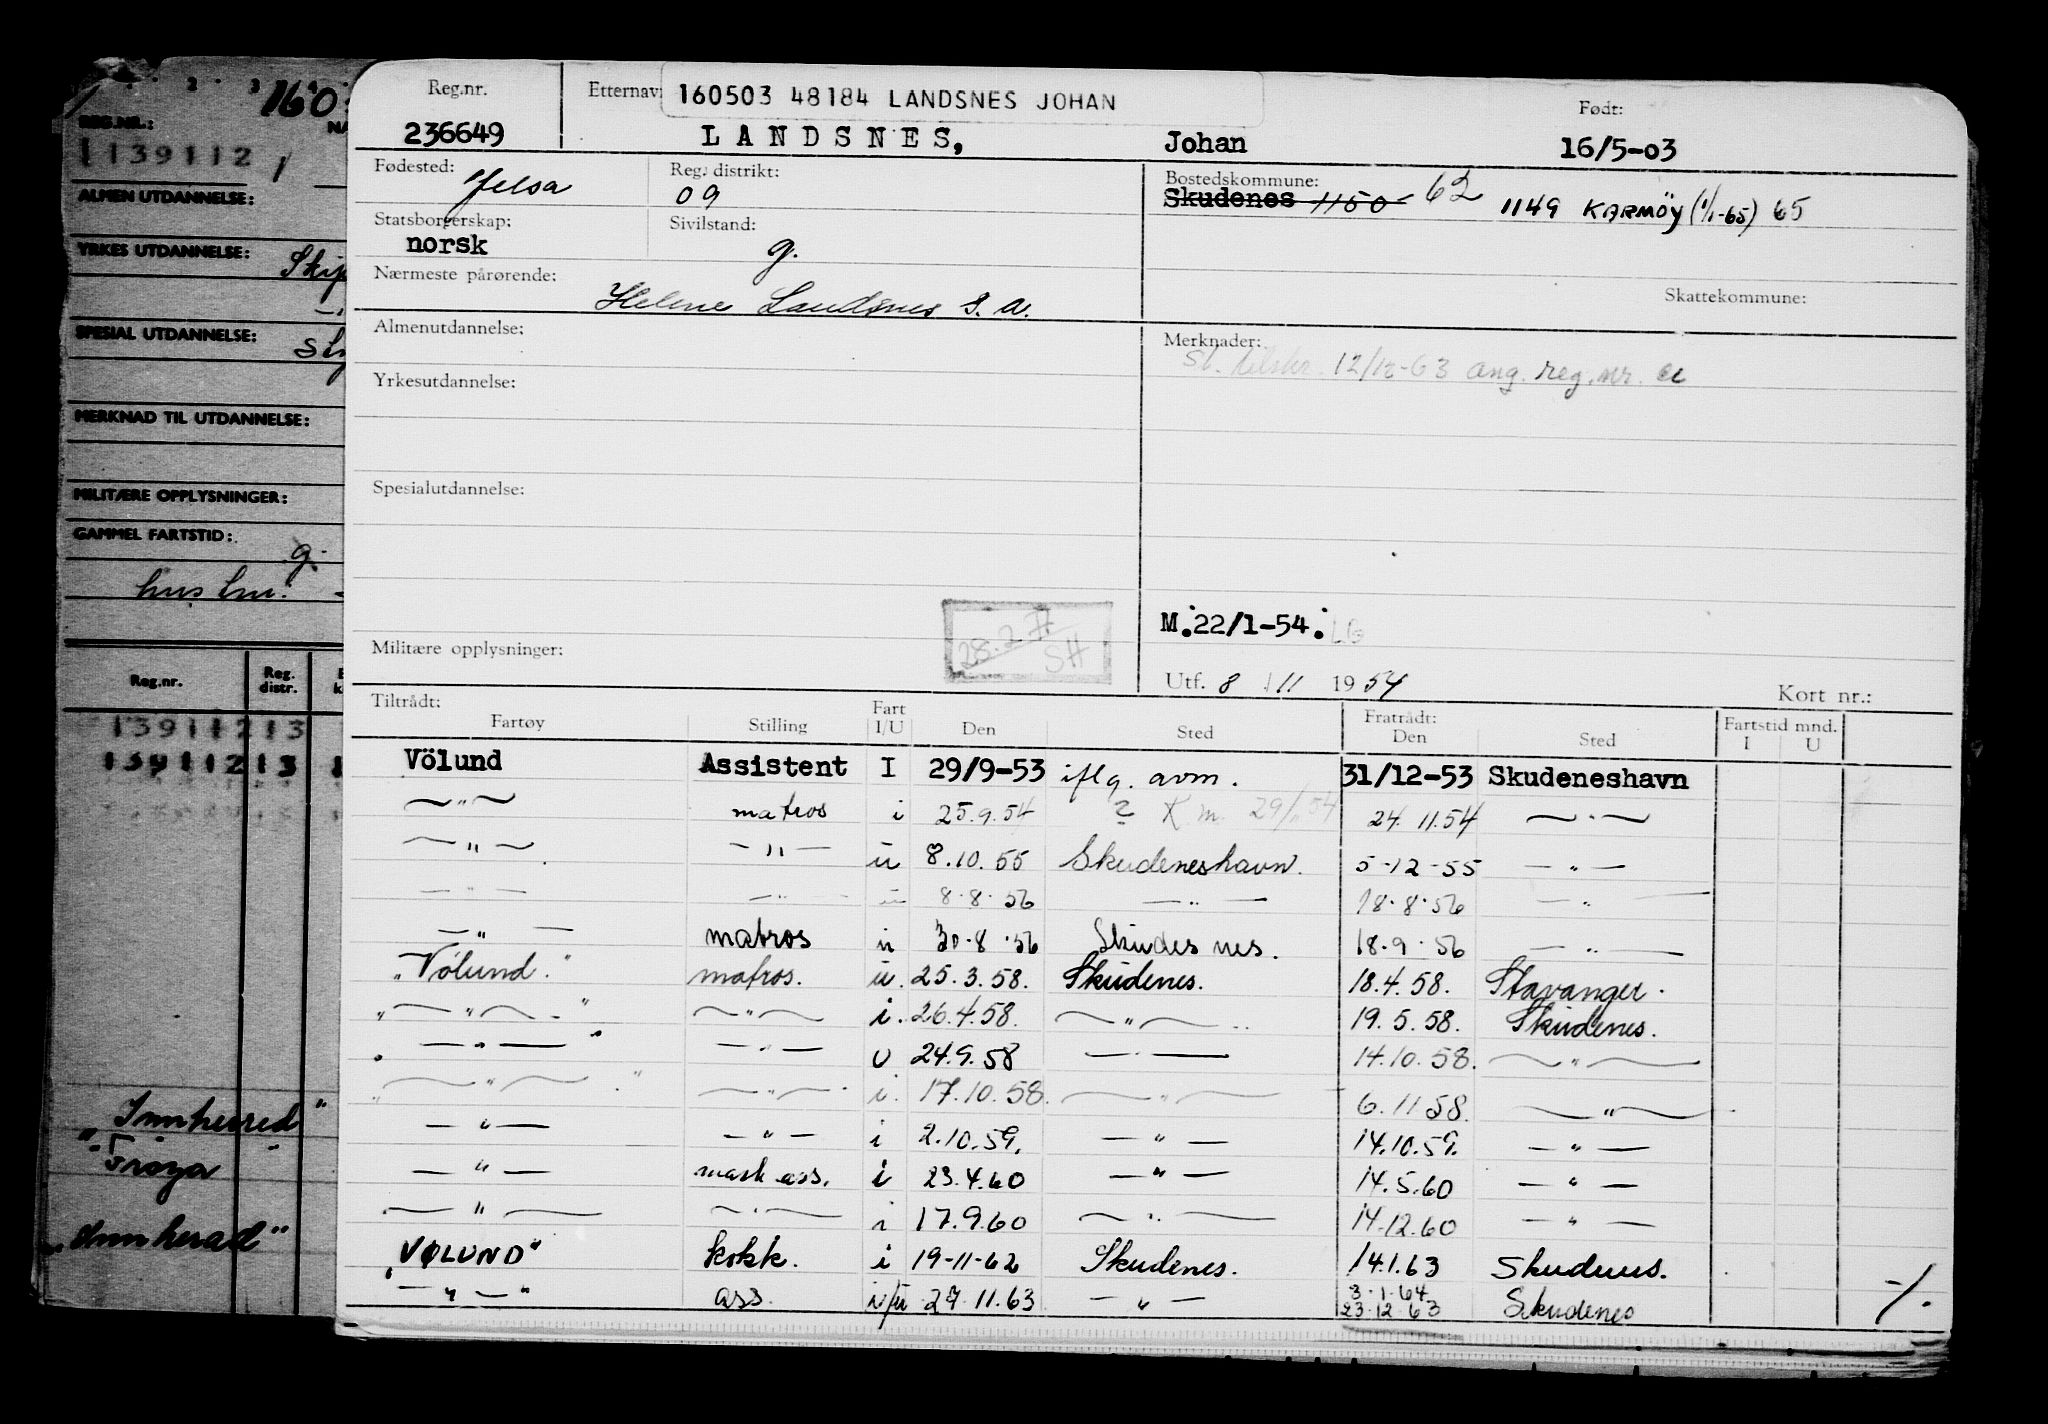 160
REG.NR.:
139112 /
ALMEN UTDANNELSE:
YRKES UTDANNELSE:
SPESIAL UTDANNELSE:
MERKNAD TIL UTDANNELSE:
MILITÆRE OPPLYSNINGER:
GAMMEL FARTSTID:
g.
Reg.nr. Reg. distr.
139112 13
139112 13
Innherred"
"Frøya
"Innherad"
Reg.nr. Etternav: 160503 48184 LANDSNES JOHAN Født:
236649 LANDSNES, Johan 16/5-03
Fødested: Reg. distrikt: Bostedskommune:
Jelsa 09 Skudenes 1150 62 1149 KARMØY (1/1-65) 65
Statsborgerskap: Sivilstand:
norsk g.
Nærmeste pårørende: Skattekommune:
Helene Landsnes s. a.
Almenutdannelse: Merknader:
12/12-63 ang. reg.nr.
Yrkesutdannelse:
Spesialutdannelse:
M.22/1-54. LG
28.2 SH
Militære opplysninger:
Utf. 8 / 11 1954 Kort nr.:
Tiltrådt: Fart Fratrådt: Fartstid mnd.
Fartøy Stilling I/U Den Sted Den Sted I U
Völund Assistent I 29/9-53 iflg. avm. 31/12-53 Skudeneshavn
—"— matros i 25.9.54 ? 24.11.54 —"—
—"— —"— u 8.10.55 Skudeneshavn. 5-12-55 —"—
—"— —"— u 8.8.56 —"— 18.8.56 —"—
—"— matros u 30.8.56 Skudesnes. 18.9.56 —"—
"Vølund." matros. u. 25.3.58. Skudenes. 18.4.58. Stavanger.
"—"—" —"— i. 26.4.58. —"— 19.5.58. Skudenes.
"—"—" —"— u 24.9.58 —"— 14.10.58. —"—
"—"—" —"— i. 17.10.58. —"— 6.11.58. —"—
—"— —"— i 2.10.59. —"— 14.10.59. —"—
—"— mask ass. i 23.4.60 —"— 14.5.60 —"—
—"— —"— i 17.9.60 —"— 14.12.60 —"—
"VØLUND" kokk. i 19-11-62 Skudenes. 14.1.63 Skudenes.
"—"—" ass. i/u 27.11.63 —"— 3.1.64 23.12.63 Skudenes
-/.